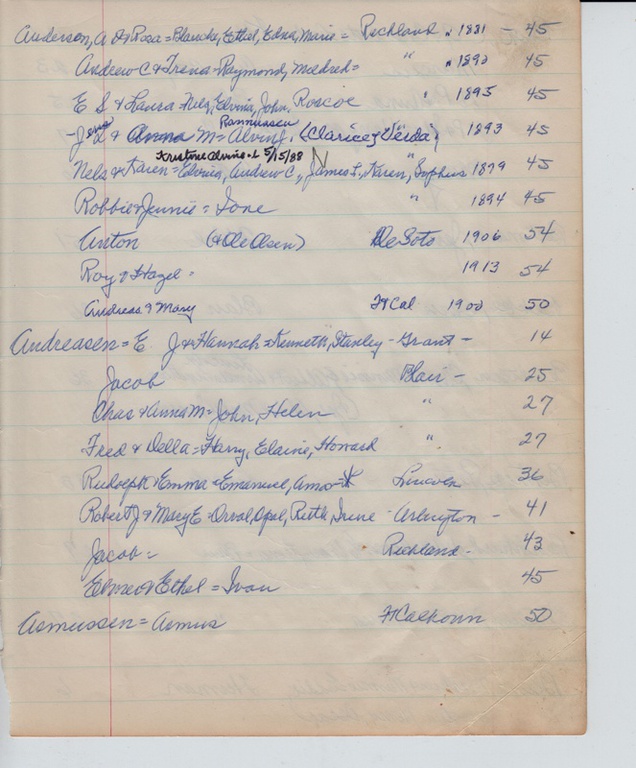 Anderson, A & Rosa = Blanche, Ethel, Edna, Marie = Richland " 1881 - 45
Andrew C & Trena = Raymond, Mildred = " " 1890 45
E S & Laura = Nels, Edvina, John, Roscoe " 1895 45
Rasmussen
- J L & Anna M = Alving, (Clarice, Verda) 1893 45
Kristine Alving - b 5/15/88
Nels & Karen = Edvina, Andrew C, James L, Karen, Sophus 1879 45
Robbie & Jennie = Ione " 1894 45
Anton (& Ole Olsen) DeSoto 1906 54
Roy & Hazel = 1913 54
Andreas & Mary Ft Cal 1900 50
Andreasen = E J & Hannah = Kenneth, Stanley - Grant - 14
Jacob Blair - 25
Chas & Anna M = John, Helen " 27
Fred & Della = Harry, Elaine, Howard " 27
Rudolph & Emma = Emanuel, Lincoln 36
Robert J & Mary E = Orval, Opal, Ruth, Irene - Arlington - 41
Jacob = Richland - 43
Elmer & Ethel = Ivan 45
Asmussen = Asmus Ft Calhoun 50